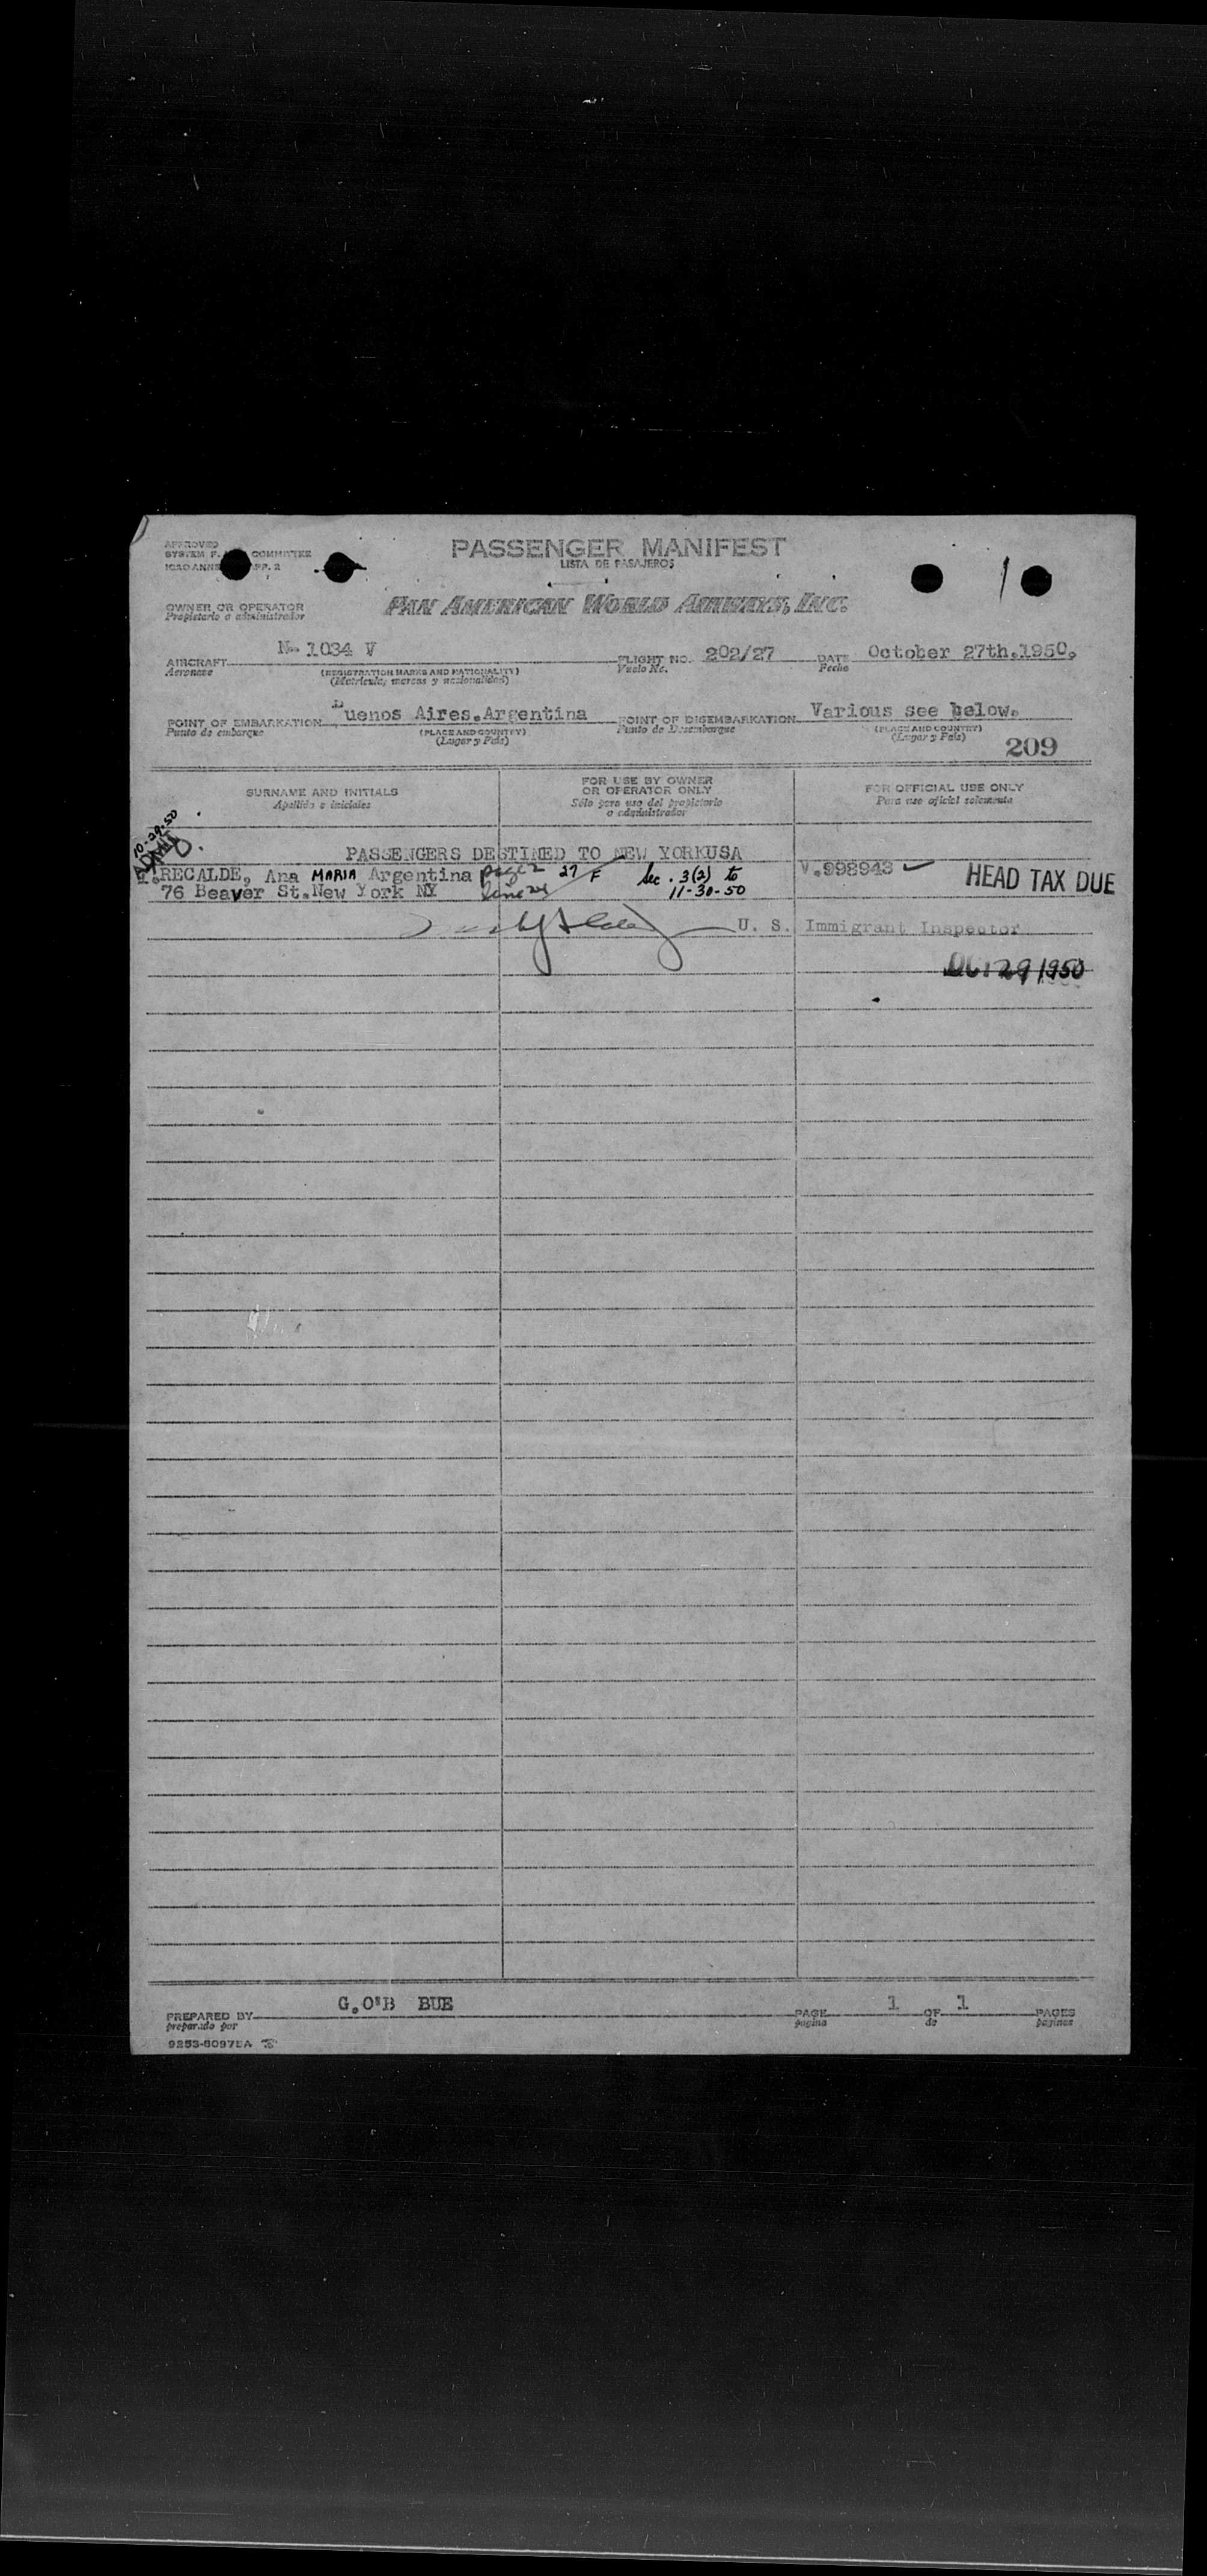 APPROVED
SYSTEM F. COMMITTEE
ICAO ANNE APP. 2
PASSENGER MANIFEST
LISTA DE PASAJEROS
OWNER OR OPERATOR
Propietario o administrador
PAN AMERICAN WORLD AIRWAYS, INC.
AIRCRAFT N- 1034 V FLIGHT NO. 202/27 DATE October 27th.1950.
Aeronave (REGISTRATION MARKS AND NATIONALITY) Vuelo No. Fecha
(Matrícula, marcas y nacionalidad)
POINT OF EMBARKATION Buenos Aires.Argentina POINT OF DISEMBARKATION Various see below.
Punto de embarque (PLACE AND COUNTRY) Punto de Desembarque (PLACE AND COUNTRY)
(Lugar y País) (Lugar y País)
209
SURNAME AND INITIALS FOR USE BY OWNER OR OPERATOR ONLY FOR OFFICIAL USE ONLY
Apellido e iniciales Sólo para uso del propietario o administrador Para uso oficial solamente
10-29-50
PASSENGERS DESTINED TO NEW YORKUSA
RECALDE, Ana MARIA Argentina page 2 27 F Sec. 3(2) to V.998943 HEAD TAX DUE
76 Beaver St.New York NY line 24 11-30-50
U. S. Immigrant Inspector
OCT 29 1950
PREPARED BY G.O'B BUE PAGE 1 OF 1 PAGES
preparado por pagina de paginas